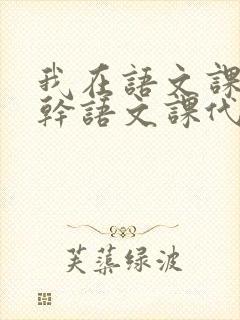 我在語文課
幹語文課代
芙蕖绿波